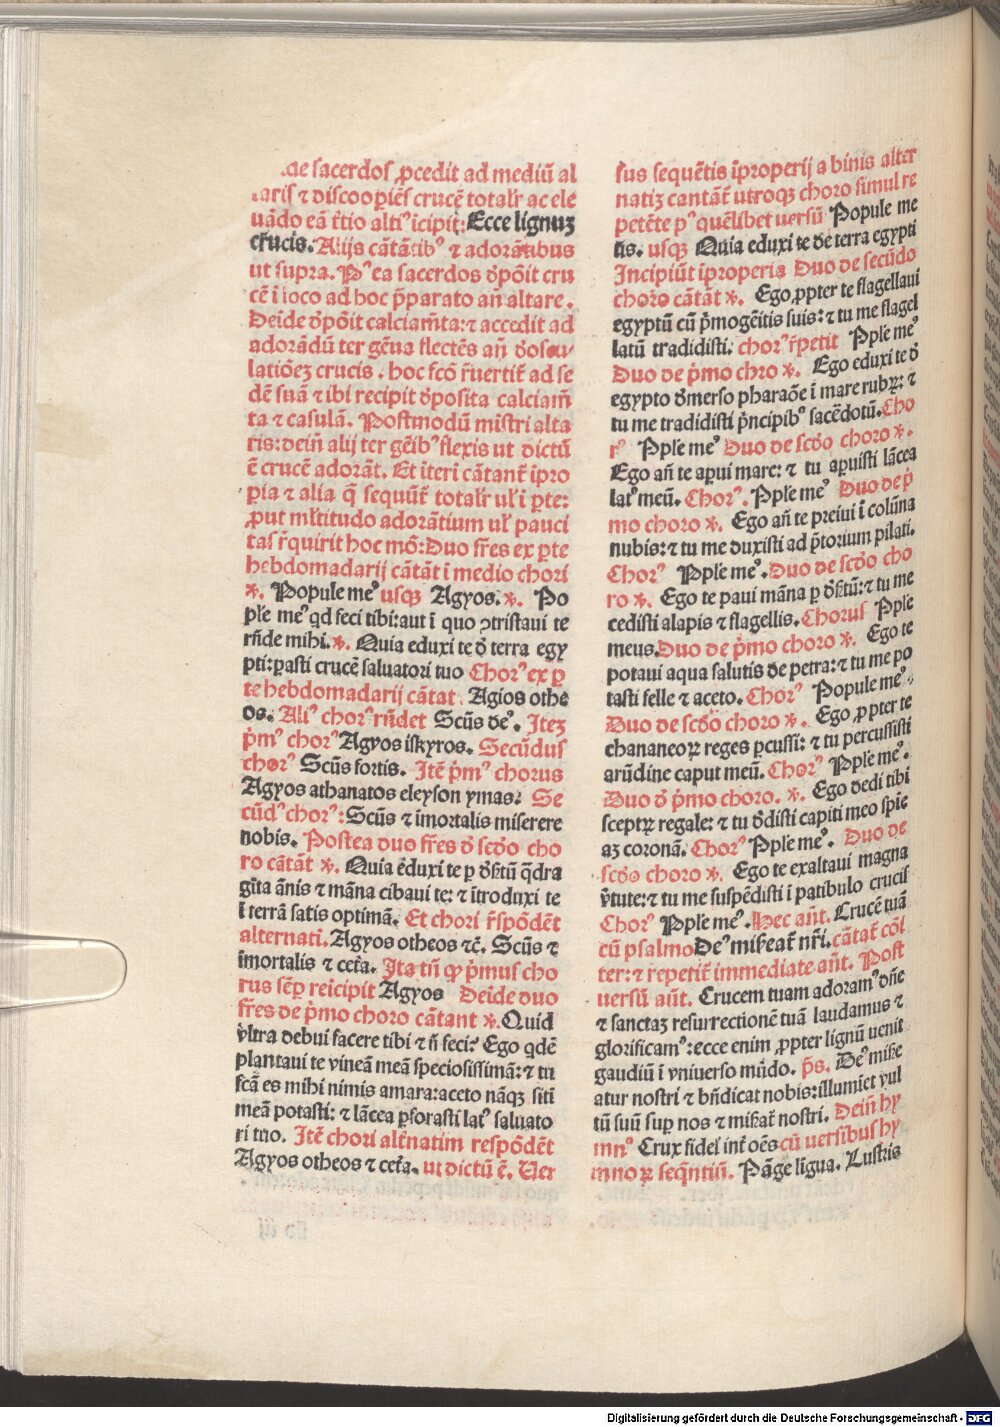 de sacerdos ꝓcedit ad mediū al
taris ⁊ discoopiēs crucē totalr̄ ac ele
uādo eā t̄tio altiꝰ īcipit: Ecce lignuꝫ
crucis. Alijs cātātibꝰ ⁊ adorātibus
ut supra. Pꝰ ea sacerdos dp̄oīt cru
cē ī loco ad hoc p̄parato an̄ altare.
Deīde dp̄oīt calciam̄ta: ⁊ accedit ad
adorādū ter gēua flectēs an̄ dosou
latiōeꝫ crucis. hoc fcō r̄uertit̄ ad se
dē suā ⁊ ibi recipit dp̄osita calciam̄
ta ⁊ casulā. Postmodū mīstri alta
ris: dein̄ alij ter geībꝰ flexis ut dictū
ē crucē adorāt. Et iterū cātant̄ ipro
peria ⁊ alia q̄ sequūt̄ totalr̄ ul̄ ī ꝑte:
ꝓut ml̄titudo adorātium ul̄ pauci
tas r̄quirit hoc mō: Duo fr̄es ex ꝑte
hebdomadarij cātāt ī medio chori
℣. Popule meꝰ usqꝫ Agyos. ℣. Po
pl̄e meꝰ qd feci tibi: aut ī quo ↄtristaui te
rn̄de mihi. ℣. Quia eduxi te d̄ terra egy
pti: ꝑasti crucē saluatori tuo Chorꝰ ex ꝑ
te hebdomadarij cātat. Agios othe
os. Aliꝰ chorꝰ rn̄det Scūs deꝰ. Iteꝫ
p̄mꝰ chorꝰ Agyos iskyros. Secūdus
chorꝰ Scūs fortis. Itē p̄mꝰ chorus
Agyos athanatos eleyson ymas: Se
cūdꝰ chorꝰ: Scūs ⁊ īmortalis miserere
nobis. Postea duo fr̄es d̄ scd̄o cho
ro cātāt ℣. Quia ēduxi te ꝑ dsrtū q̄dra
gīta ānis ⁊ māna cibaui te: ⁊ ītroduxi te
ī terrā satis optimā. Et chori r̄spōdēt
alternatī. Agyos otheos ⁊c̄. Scūs ⁊
īmortalis ⁊ cet̄a. Ita tn̄ ꝙ p̄mus cho
rus sēp̄ reīcipit Agyos Deīde duo
fr̄es de p̄mo choro cātant ℣. Quid
vltra debui facere tibi ⁊ n̄ feci? Ego qdē
plantaui te vīneā meā speciosissimā: ⁊ tu
fcā es mihi nimis amara: aceto nāqꝫ sitī
meā potasti: ⁊ lācea ꝑforasti latꝰ saluato
ri tuo. Itē chori alt̄natim respōdēt
Agyos otheos ⁊ cet̄a. ut dictū ē. Uer
sus sequētis īproperij a binis alter
natiꝫ cantāt̄ utroqꝫ choro simul re
petēte pꝰ quēlibet uersū Popule me
us. usqꝫ Quia eduxi te de terra egypti
Incipiūt īproperia Duo de secūdo
choro cātāt ℣. Ego ꝓpter te flagellaui
egyptū cū p̄mogēitis suis: ⁊ tu me flagel
latū tradidisti. chorꝰ r̄petit Ppl̄e meꝰ
Duo de p̄mo chro ℣. Ego eduxi te d̄
egypto d̄merso pharaōe ī mare rubꝝ: ⁊
tu me tradidisti p̄ncipibꝰ sacēdotū. Cho
rꝰ Ppl̄e meꝰ Duo de scd̄o choro ℣.
Ego an̄ te aꝑui mare: ⁊ tu aꝑuisti lācea
latꝰ meū. Chorꝰ. Ppl̄e meꝰ Duo de p̄
mo choro ℣. Ego an̄ te preiui ī colūna
nubis: ⁊ tu me duxisti ad p̄torium pilati.
Chorꝰ Ppl̄e meꝰ. Duo de scd̄o cho
ro ℣. Ego te paui māna ꝑ dsrtū: ⁊ tu me
cedisti alapis ⁊ flagellis. Chorus Pple
meus. Duo de p̄mo choro ℣. Ego te
potaui aqua salutis de petra: ⁊ tu me po
tasti felle ⁊ aceto. Chorꝰ Popule meꝰ.
Duo de scd̄o choro ℣. Ego ꝓpter te
chananeoꝝ reges ꝑcussi: ⁊ tu percussisti
arūdine caput meū. Chorꝰ Ppl̄e meꝰ.
Duo d̄ p̄mo choro. ℣. Ego dedi tibi
sceptꝝ regale: ⁊ tu d̄disti capiti meo spīe
aꝫ coronā. Chorꝰ Ppl̄e meꝰ. Duo de
scd̄o choro ℣. Ego te exaltaui magna
v̄tute: ⁊ tu me suspēdisti ī patibulo crucis
Chorꝰ Ppl̄e meꝰ. Hec an̄t. Crucē tuā
cū psalmo Deꝰ miseat̄ nr̄i. cātat̄ cōī
ter: ⁊ repetit̄ immediate an̄t. Post
uersū an̄t. Crucem tuam adoramꝰ dn̄e
⁊ sanctaꝫ resurrectionē tuā laudamus ⁊
glorificamꝰ: ecce enim ꝓpter lignū uenit
gaudiū ī vniuerso mūdo. p̄s. Deꝰ mise
atur nostri ⁊ bn̄dicat nobis: illumīet vul
tū suū suꝑ nos ⁊ miseat̄ nostri. Dein̄ hy
mnꝰ Crux fidel̄ int̄ oēs cū uersibus hy
mnoꝝ seq̄ntiū. Pāge līgua. Lustris
Digitalisierung gefördert durch die Deutsche Forschungsgemeinschaft - DFG